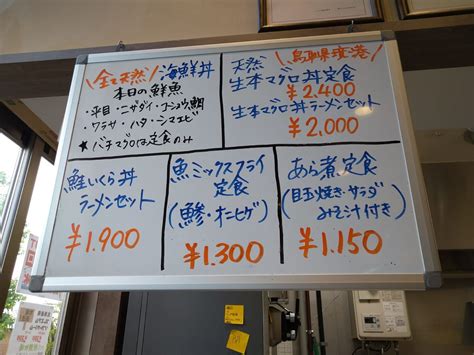 \全て天然/ 海鮮丼
本日の鮮魚
・平目・ニザダイ・コショウ鯛
・ワラサ・ハタ・シマエビ
★バチマグロは定食のみ
\鳥取県境港/
天然
生本マグロ丼定食
¥2,400
生本マグロ丼ラーメンセット
¥2,000
鮭いくら丼
ラーメンセット
¥1.900
魚ミックスフライ
定食
(鯵・オニヒゲ)
¥1.300
あら煮定食
(目玉焼き・サラダ
みそ汁付き)
¥1.150